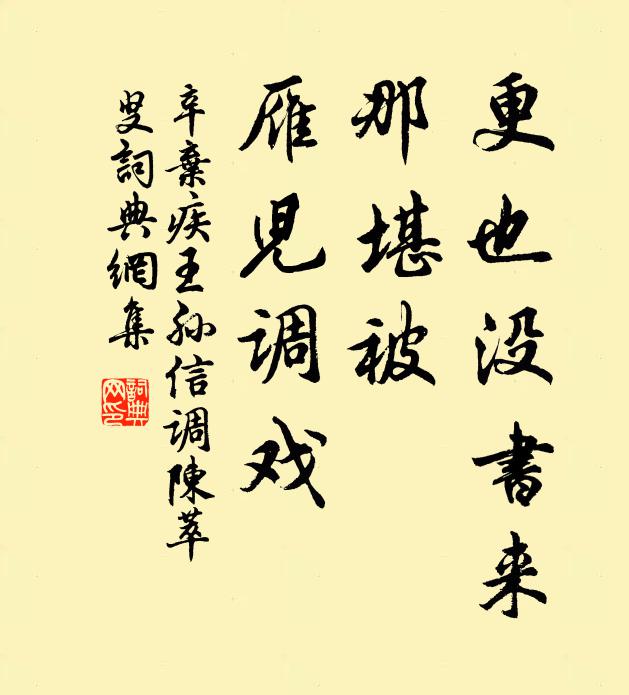 更也没書来
那堪被
雁児调戏
辛棄疾王孙信調陳萃
叟詞典網集
詞典
网印